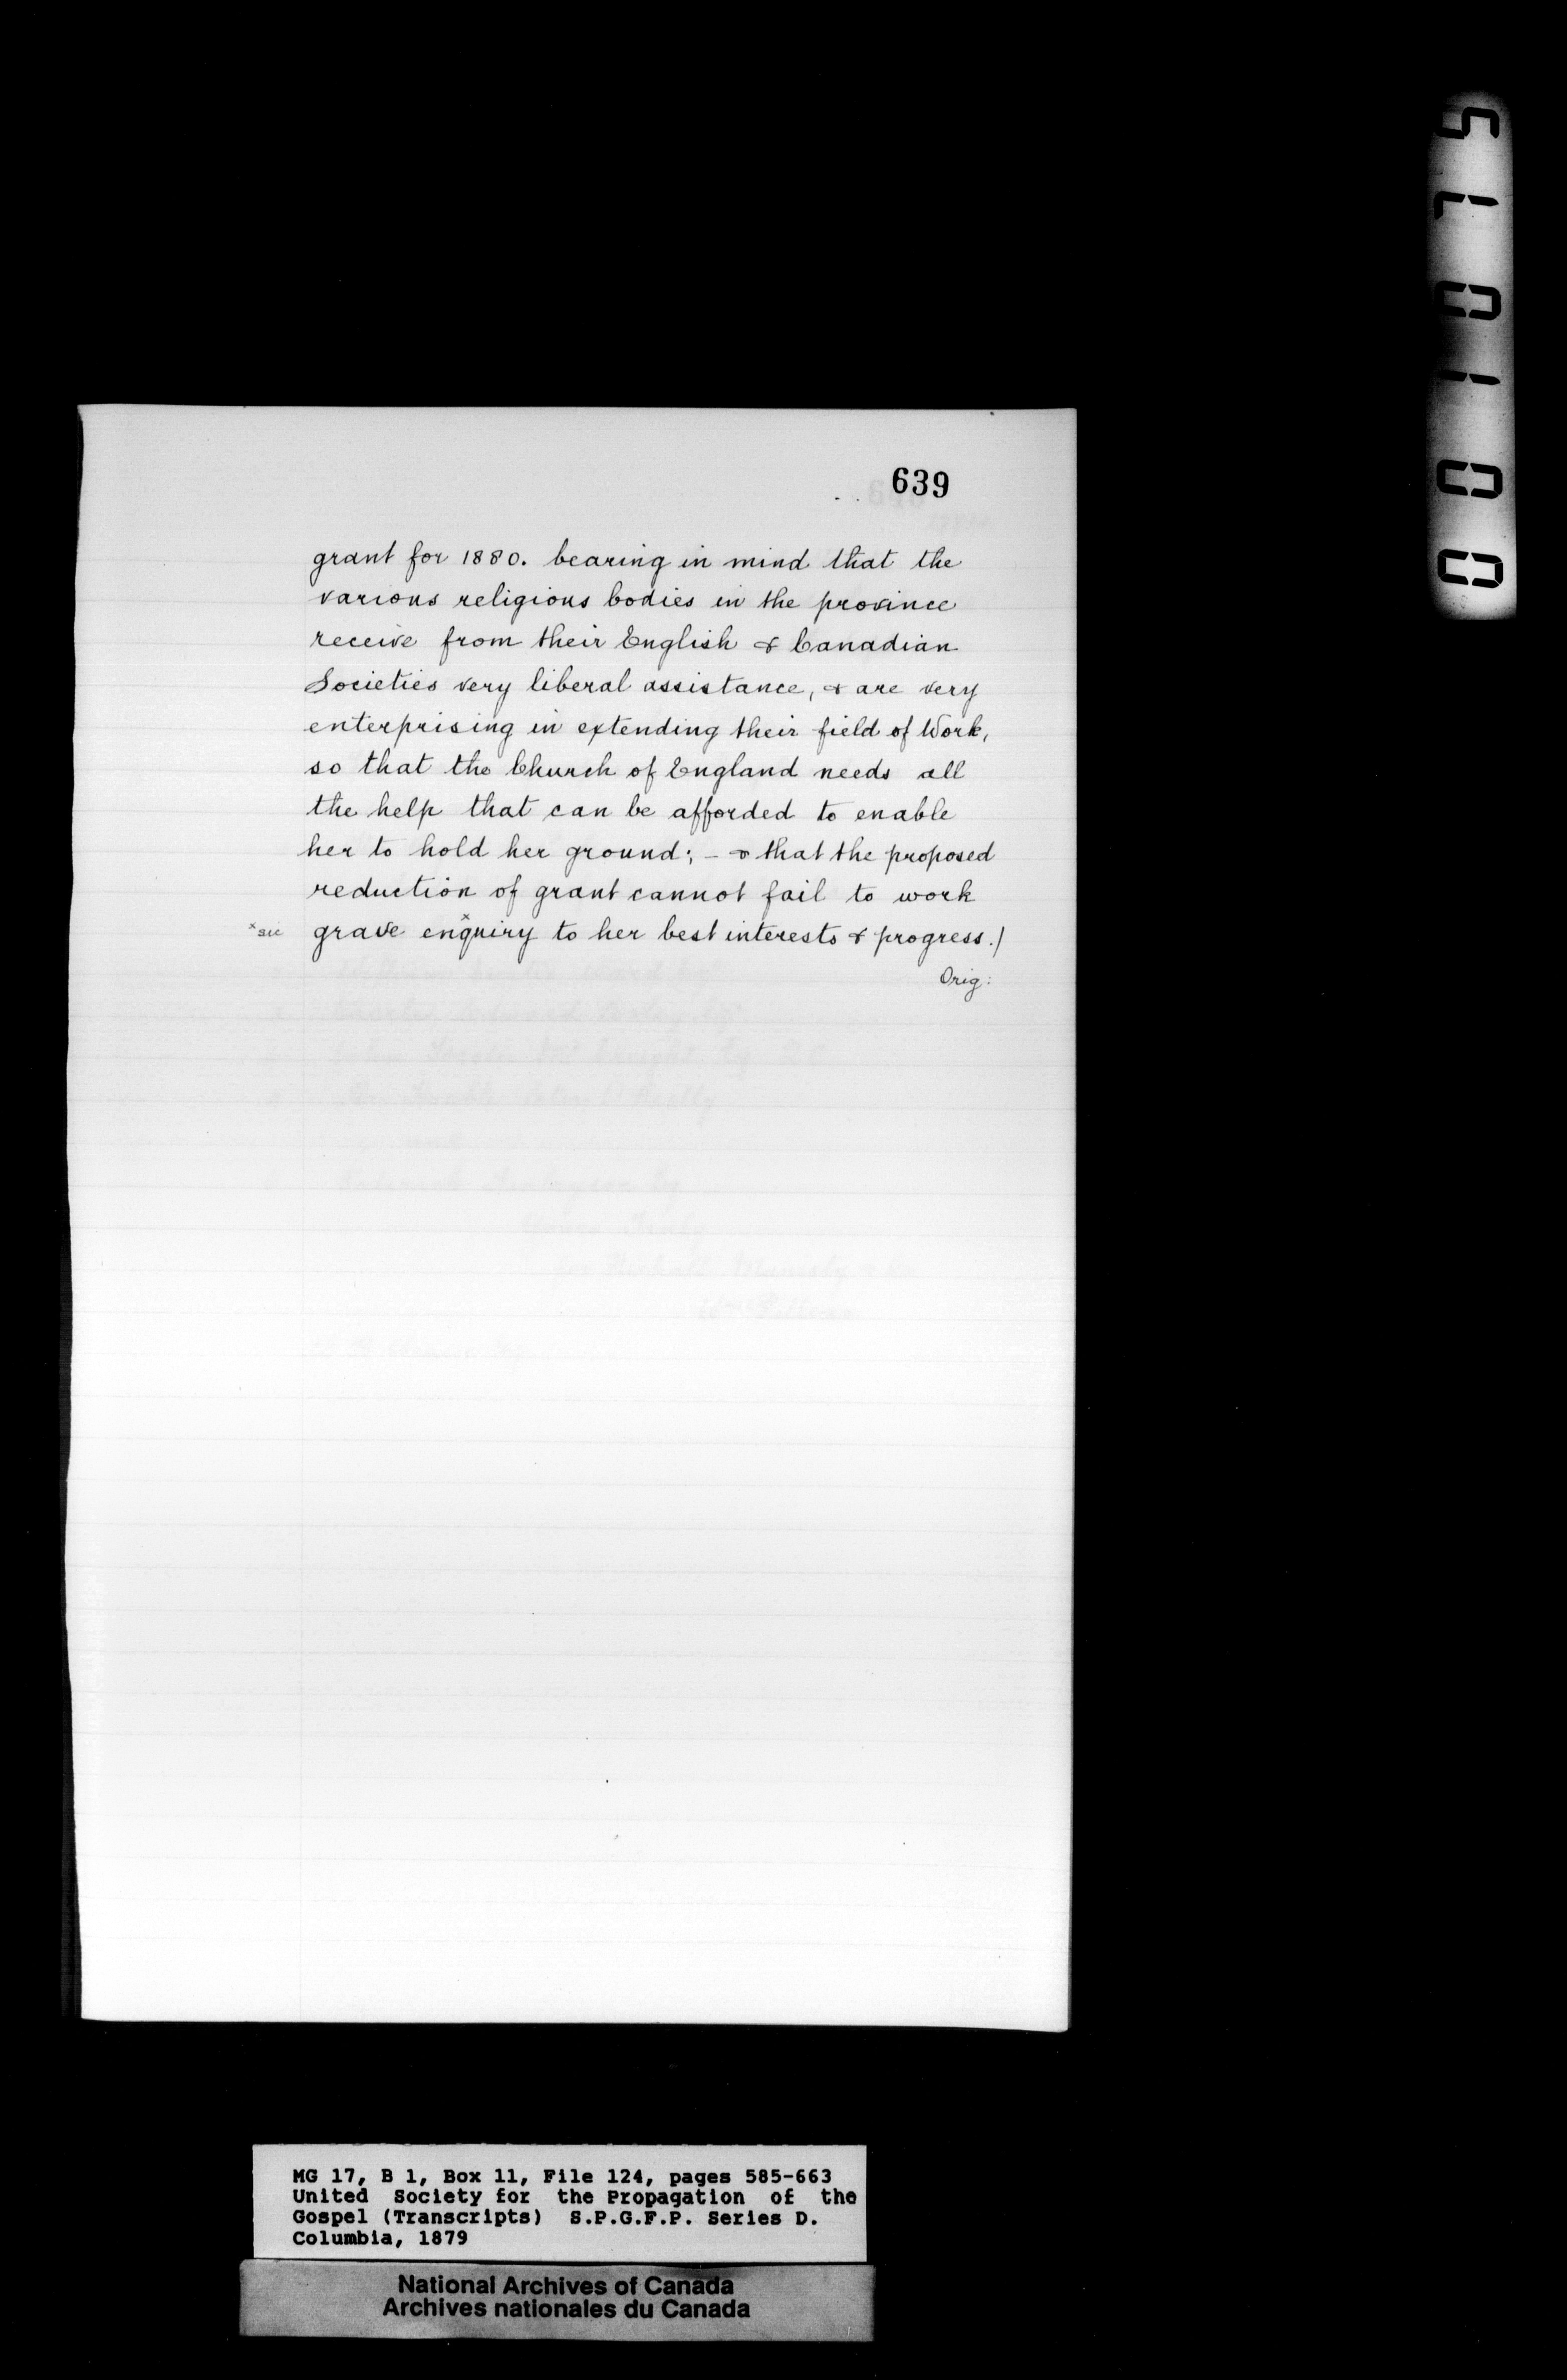 639
grant for 1880. bearing in mind that the
various religious bodies in the province
receive from their English & Canadian
Societies very liberal assistance, & are very
enterprising in extending their field of Work,
so that the Church of England needs all
the help that can be afforded to enable
her to hold her ground; - & that the proposed
reduction of grant cannot fail to work
x sic grave enquiry x to her best interests & progress./
Orig:
MG 17, B 1, Box 11, File 124, pages 585-663
United Society for the Propagation of the
Gospel (Transcripts) S.P.G.F.P. Series D.
Columbia, 1879
National Archives of Canada
Archives nationales du Canada
001075